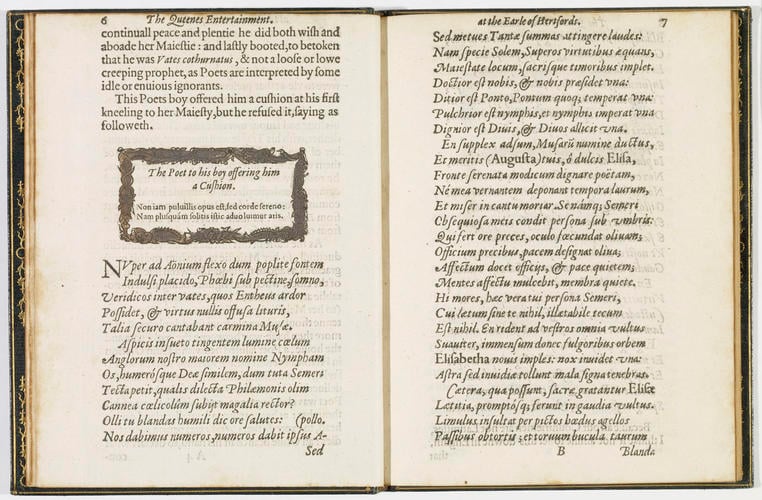 6 The Queenes Entertainment.
continuall peace and plentie he did both wish and
aboade her Maiestie: and lastly booted, to betoken
that he was Vates cothurnatus, & not a loose or lowe
creeping prophet, as Poets are interpreted by some
idle or enuious ignorants.
This Poets boy offered him a cushion at his first
kneeling to her Maiesty, but he refused it, saying as
followeth.
The Poet to his boy offering him
a Cushion.
Non iam puluillis opus est, sed corde sereno:
Nam plusquàm solitis istic aduoluimur aris.
NVper ad Aönium flexo dum poplite fontem
Indulsi placido, Phœbi sub pectine, somno,
Veridicos inter vates, quos Entheus ardor
Possidet, & virtus nullis offusa lituris,
Talia securo cantabant carmina Musæ.
Aspicis insueto tingentem lumine cœlum
Anglorum nostro maiorem nomine Nympham
Os, humerósque Deæ similem, dum tuta Semeri
Tecta petit, qualis dilecta Philæmonis olim
Cannea cœlicolûm subijt magalia rector?
Olli tu blandas humili dic ore salutes: (pollo.
Nos dabimus numeros, numeros dabit ipsus A-
Sed
at the Earle of Hertfords. 7
Sed metues Tantæ summas attingere laudes:
Nam specie Solem, Superos virtutibus æquans,
Maiestate locum, sacrísque timoribus implet.
Doctior est nobis, & nobis præsidet vna:
Ditior est Ponto, Pontum quoq; temperat vna:
Pulchrior est nymphis, et nymphis imperat vna
Dignior est Diuis, & Diuos allicit vna.
En supplex adsum, Musarû numine ductus,
Et meritis (Augusta) tuis, ô dulcis Elisa,
Fronte serenata modicum dignare poëtam,
Né mea vernantem deponant tempora laurum,
Et miser in cantu moriar. Se námq; Semeri
Obsequiosa meis condit persona sub vmbris:
Qui fert ore preces, oculo fœcundat oliuam;
Officium precibus, pacem designat oliua;
Affectum docet officijs, & pace quietem;
Mentes affectu mulcebit, membra quiete.
Hi mores, hæc vera tui persona Semeri,
Cui lætum sine te nihil, illætabile tecum
Est nihil. En rident ad vestros omnia vultus
Suauiter, immensum donec fulgoribus orbem
Elisabetha nouis imples: nox inuidet vna:
Astra sed inuidiæ tollunt mala signa tenebras.
Cætera, qua possunt, sacræ gratantur Elisæ
Lætitia, promptósq; ferunt in gaudia vultus.
Limulus insultat per pictos hœdus agellos
Passibus obtortis; et toruum bucula taurum
B Blanda